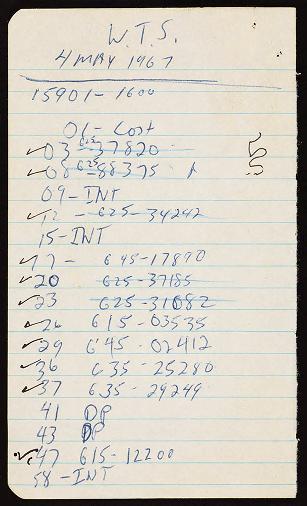 W.T.S.
4 MAY 1967
15901 - 1600
01 - Cost
✓03 625-37820
✓08 625-88375
09 - INT
✓12 - 625-34242
15 - INT
✓17 - 645-17890
✓20 625-37185
✓23 625-31082
✓26 615-03535
✓29 645-02412
✓36 635-25280
✓37 635-29249
41 DP
43 DP
✓47 615-12200
58 - INT